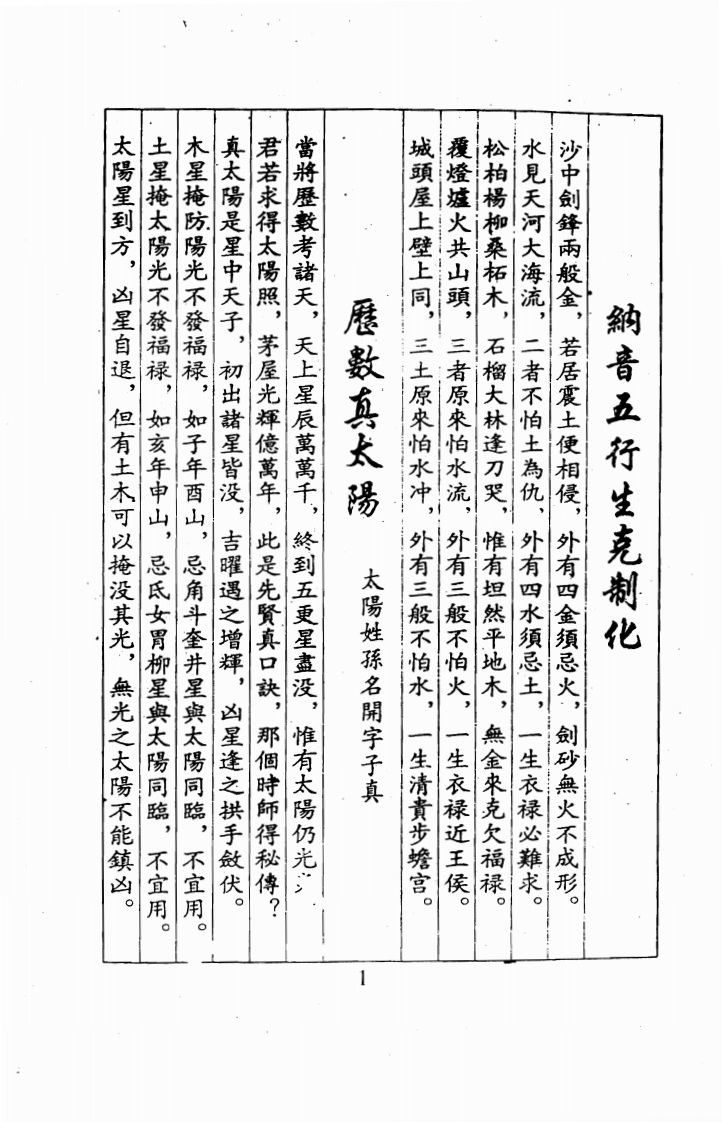 納音五行生克制化
沙中劍鋒兩般金，若居震土便相侵，外有四金須忌火，劍砂無火不成形。
水見天河大海流，二者不怕土為仇，外有四水須忌土，一生衣禄必難求。
松柏楊柳桑柘木，石榴大林逢刀哭，惟有坦然平地木，無金來克欠福禄。
覆燈爐火共山頭，三者原來怕水流，外有三般不怕火，一生衣禄近王侯。
城頭屋上壁上同，三土原來怕水冲，外有三般不怕水，一生清貴步蟾宫。
歷數真太陽
太陽姓孫名開字子真
當將歷數考諸天，天上星辰萬萬千，終到五更星盡没，惟有太陽仍光
君若求得太陽照，茅屋光輝億萬年，此是先賢真口訣，那個時師得秘傳？
真太陽是星中天子，初出諸星皆没，吉曜遇之增輝，凶星逢之拱手斂伏。
木星掩防陽光不發福禄，如子年酉山，忌角斗奎井星與太陽同臨，不宜用。
土星掩太陽光不發福禄，如亥年申山，忌氐女胃柳星與太陽同臨，不宜用。
太陽星到方，凶星自退，但有土木可以掩没其光，無光之太陽不能鎮凶。
1